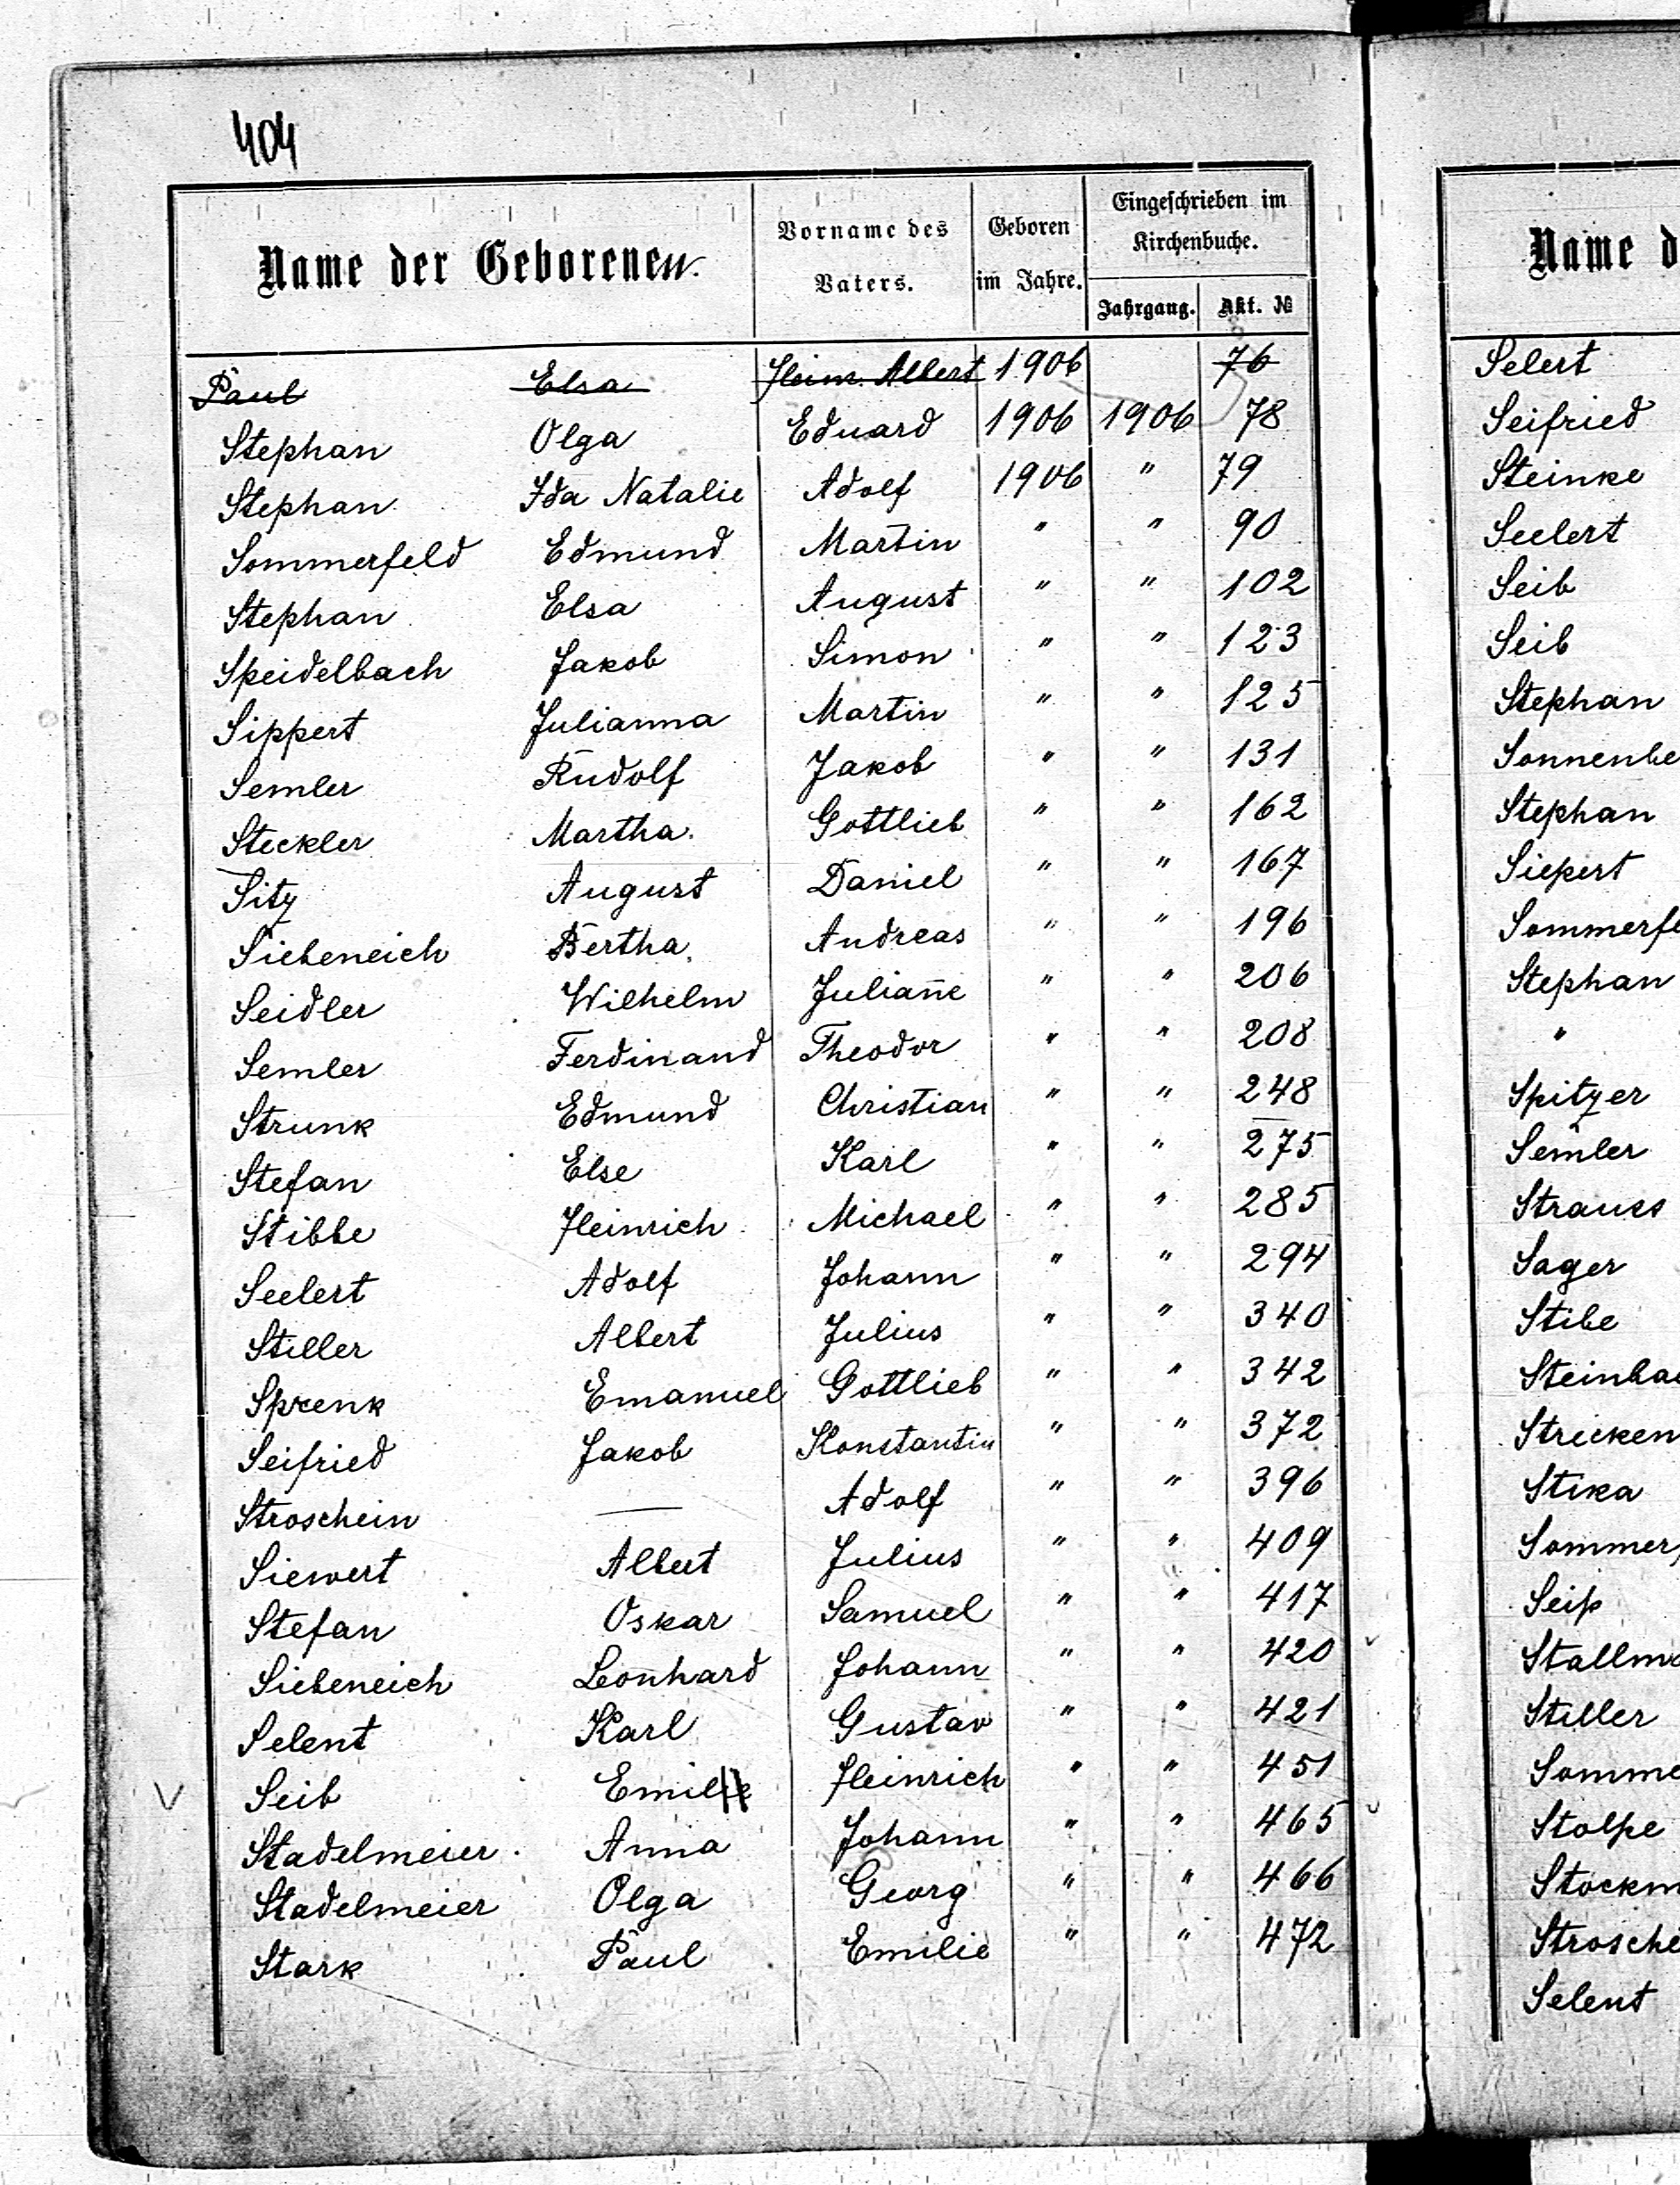 404
Name der Geborenen.
Vorname des Vaters.
Geboren im Jahre.
Eingeschrieben im Kirchenbuche.
Jahrgang. Akt. №
Paul Elsa Heinr. Albert 1906 76
Stephan Olga Eduard 1906 1906 78
Stephan Ida Natalie Adolf 1906 " 79
Sommerfeld Edmund Martin " " 90
Stephan Elsa August " " 102
Speidelbach Jakob Simon " " 123
Sippert Julianna Martin " " 125
Semler Rudolf Jakob " " 131
Steckler Martha. Gottlieb " " 162
Sitz August Daniel " " 167
Siebeneich Bertha. Andreas " " 196
Seidler Wilhelm Juliane " " 206
Semler Ferdinand Theodor " " 208
Strunk Edmund Christian " " 248
Stefan Else Karl " " 275
Stibbe Heinrich Michael " " 285
Seelert Adolf Johann " " 294
Stiller Albert Julius " " 340
Sprenk Emanuel Gottlieb " " 342
Seifried Jakob Konstantin " " 372
Stroschein — Adolf " " 396
Siewert Albert Julius " " 409
Stefan Oskar Samuel " " 417
Siebeneich Leonhard Johann " " 420
Selent Karl Gustav " " 421
V Seib Emil Heinrich " " 451
Stadelmeier Anna Johann " " 465
Stadelmeier Olga Georg " " 466
Stark Paul Emilie " " 472
Name d
Selert
Seifried
Steinke
Seelert
Seib
Seib
Stephan
Sonnenbe
Stephan
Siepert
Sommerfe
Stephan
"
Spitzer
Semler
Strauss
Sager
Stibe
Steinba
Stricken
Stika
Sommer
Seiß
Stallma
Stiller
Somme
Stolpe
Stockm
Strosche
Selent